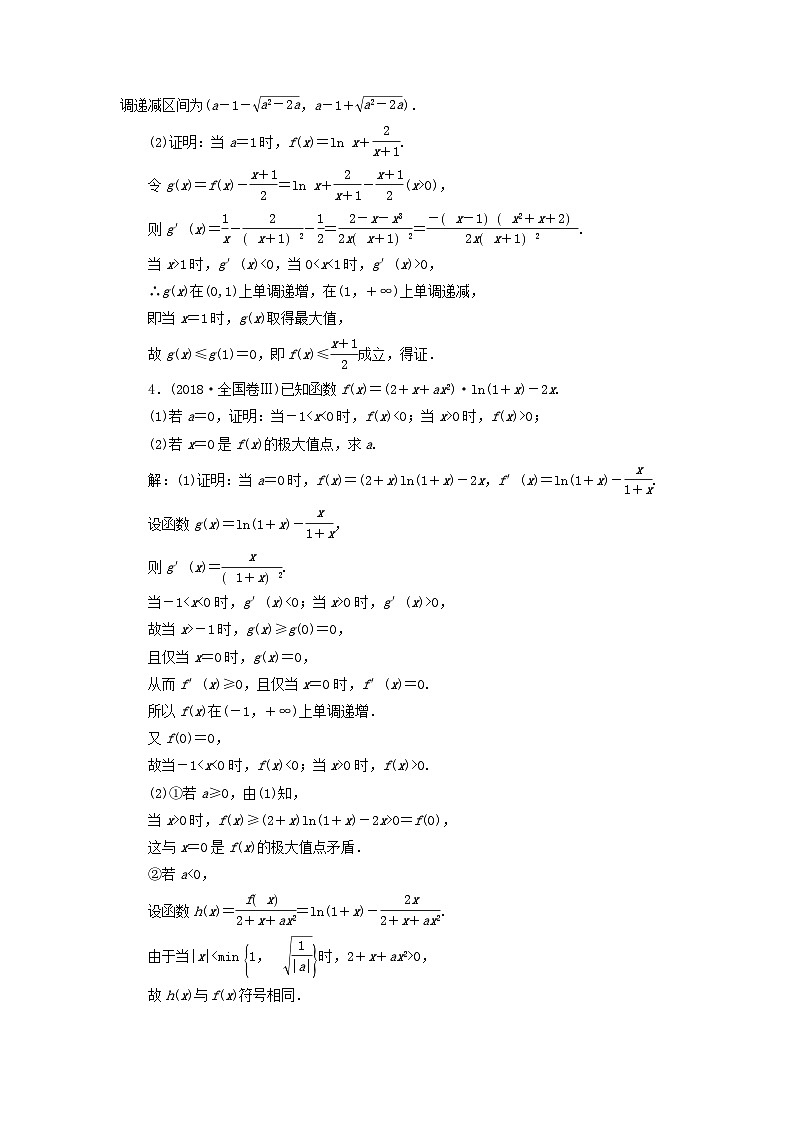 调递减区间为(a－1－√(a²－2a)，a－1＋√(a²－2a))．
(2)证明：当 a＝1时，f(x)＝ln x＋2/(x＋1).
令 g(x)＝f(x)－(x＋1)/2＝ln x＋2/(x＋1)－(x＋1)/2(x>0)，
则 g′(x)＝1/x－2/(x＋1)²－1/2＝(2－x－x³)/(2x(x＋1)²)＝－(x－1)(x²＋x＋2)/(2x(x＋1)²).
当 x>1时，g′(x)<0，当 0<x<1时，g′(x)>0，
∴g(x)在(0,1)上单调递增，在(1，＋∞)上单调递减，
即当 x＝1时，g(x)取得最大值，
故 g(x)≤g(1)＝0，即 f(x)≤(x＋1)/2成立，得证．
4．(2018·全国卷Ⅲ)已知函数 f(x)＝(2＋x＋ax²)·ln(1＋x)－2x.
(1)若 a＝0，证明：当－1<x<0时，f(x)<0；当 x>0时，f(x)>0；
(2)若 x＝0是 f(x)的极大值点，求 a.
解：(1)证明：当 a＝0时，f(x)＝(2＋x)ln(1＋x)－2x，f′(x)＝ln(1＋x)－x/(1＋x).
设函数 g(x)＝ln(1＋x)－x/(1＋x)，
则 g′(x)＝x/(1＋x)².
当－1<x<0时，g′(x)<0；当 x>0时，g′(x)>0，
故当 x>－1时，g(x)≥g(0)＝0，
且仅当 x＝0时，g(x)＝0，
从而 f′(x)≥0，且仅当 x＝0时，f′(x)＝0.
所以 f(x)在(－1，＋∞)上单调递增．
又 f(0)＝0，
故当－1<x<0时，f(x)<0；当 x>0时，f(x)>0.
(2)①若 a≥0，由(1)知，
当 x>0时，f(x)≥(2＋x)ln(1＋x)－2x>0＝f(0)，
这与 x＝0是 f(x)的极大值点矛盾．
②若 a<0，
设函数 h(x)＝f(x)/(2＋x＋ax²)＝ln(1＋x)－2x/(2＋x＋ax²).
由于当|x|<min{1，√(1/|a|)}时，2＋x＋ax²>0，
故 h(x)与 f(x)符号相同．